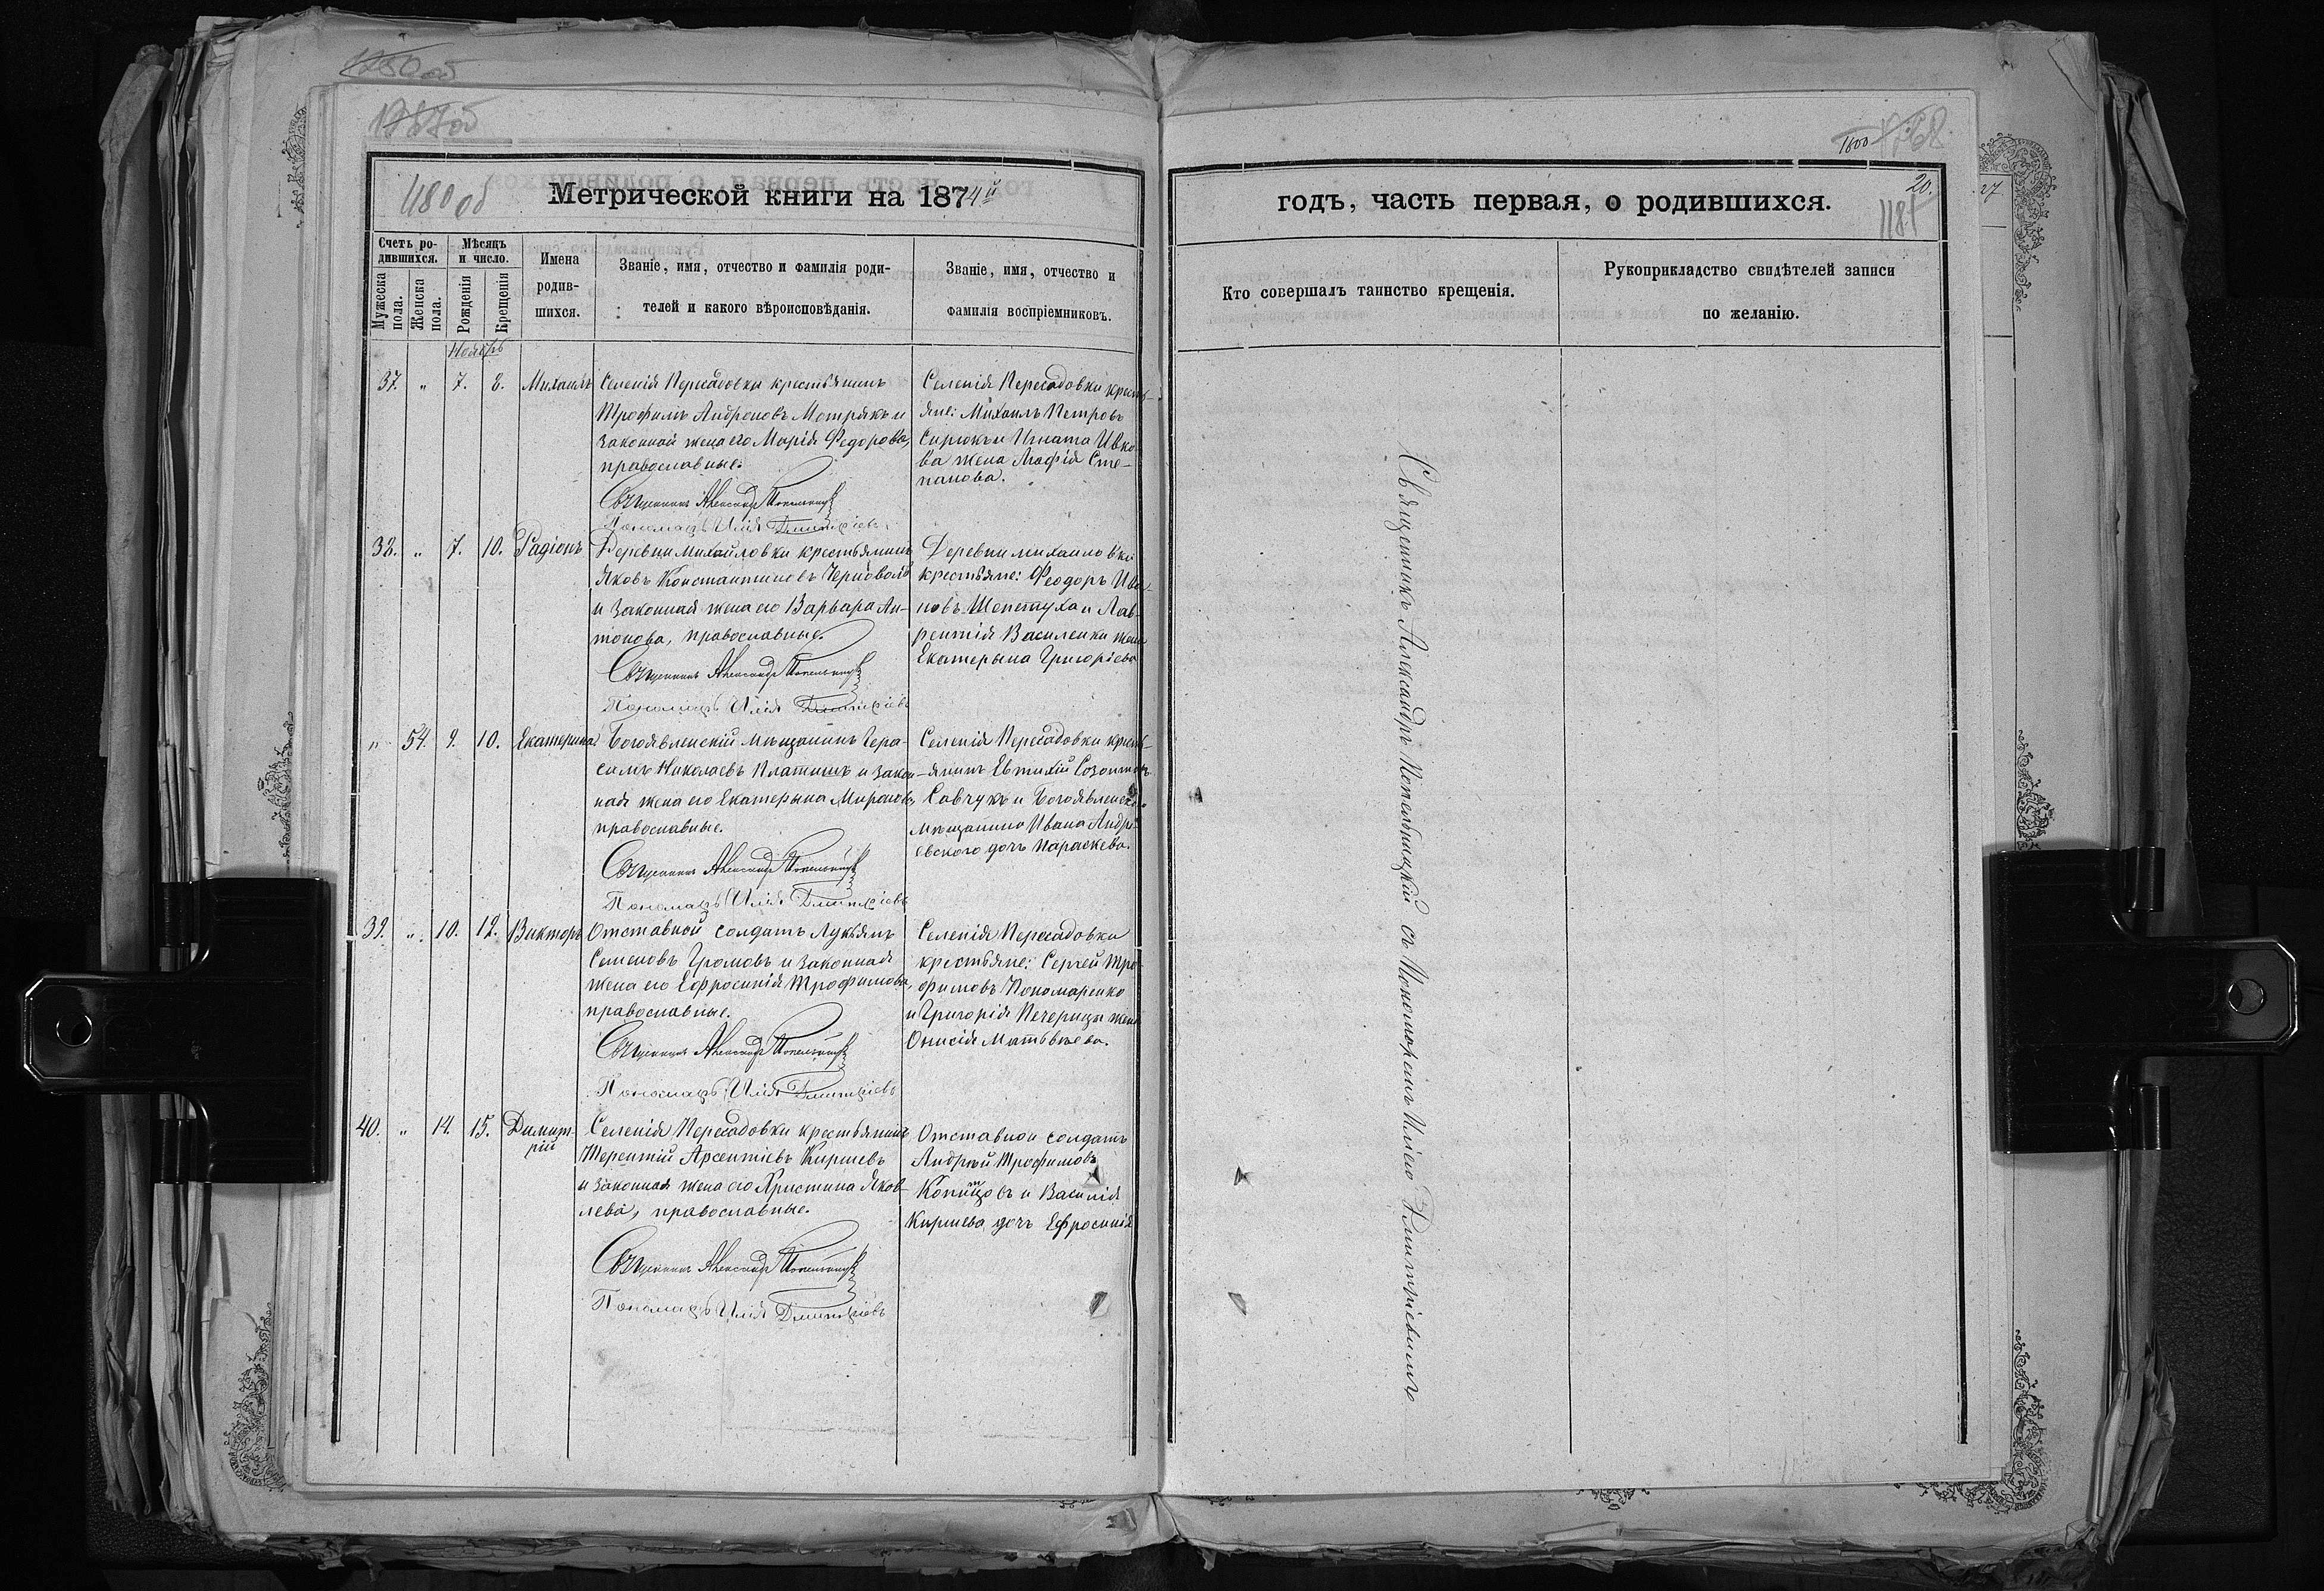 1180 об
Метрической книги на 1874й
Счетъ ро-
дившихся.
Мѣсяцъ
и число.
Мужеска
пола.
Женска
пола.
Рожденія
Крещенія
Имена
родив-
шихся.
Званіе, имя, отчество и фамилія роди-
телей и какого вѣроисповѣданія.
Званіе, имя, отчество и
фамилія воспріемниковъ.
Ноябрь
37. " 7. 8. Михаилъ
Селенія Пересадовки крестьянинъ
Трофимъ Андреновъ Мотрякъ и
законная жена его Марія Федорова,
православные.
Священникъ Александръ Попельницкій
Пономарь Илія Димитріевъ
Селенія Пересадовки кресть-
яне: Михаилъ Петровъ
Сирюкъ и Игната Ивко-
ва жена Агафія Сте-
панова.
38. " 7. 10. Радіонъ
Деревни Михайловки крестьянинъ
Яковъ Константиновъ Черноволъ
и законная жена его Варвара Ан-
тонова, православные.
Священникъ Александръ Попельницкій
Пономарь Илія Димитріевъ
Деревни Михаиловки
крестьяне: Феодоръ Ива-
новъ Шептуха и Лав-
рентія Василенки жена
Екатерына Григоріева
" 54. 9. 10. Екатерина
Богоявленскій мѣщанинъ Гера-
симъ Николаевъ Платишъ и закон-
ная жена его Екатерына Миронова,
православные.
Священникъ Александръ Попельницкій
Пономарь Илія Димитріевъ
Селенія Пересадовки кресть-
-янинъ Евтихій Созонтовъ
Савчукъ и Богоявленска-
мѣщанина Ивана Андрі-
евского дочь Параскева.
39. " 10. 12. Викторъ
Отставной солдатъ Лукьянъ
Семеновъ Громовъ и законная
жена его Ефросинія Трофимова,
православные.
Священникъ Александръ Попельницкій
Пономарь Илія Димитріевъ
Селенія Пересадовки
крестьяне: Сергей Тро-
фимовъ Пономаренко
и Григорія Печерицы жена
Онисія Матвѣева.
40. " 14. 15. Димит-
рій
Селенія Пересадовки крестьянинъ
Терентій Арсентіевъ Киршевъ
и законная жена его Христина Яков-
лева, православные.
Священникъ Александръ Попельницкій
Пономарь Илія Димитріевъ
Отставнои солдатъ
Андрей Трофимовъ
и Василія
Киршева дочь Ефросинія
1800
20.
1181
годъ, часть первая, о родившихся.
Кто совершалъ таинство крещенія.
Рукоприкладство свидѣтелей записи
по желанію.
Священникъ Александръ Попельницкій съ Пономаремъ Иліею Димитріевымъ
27